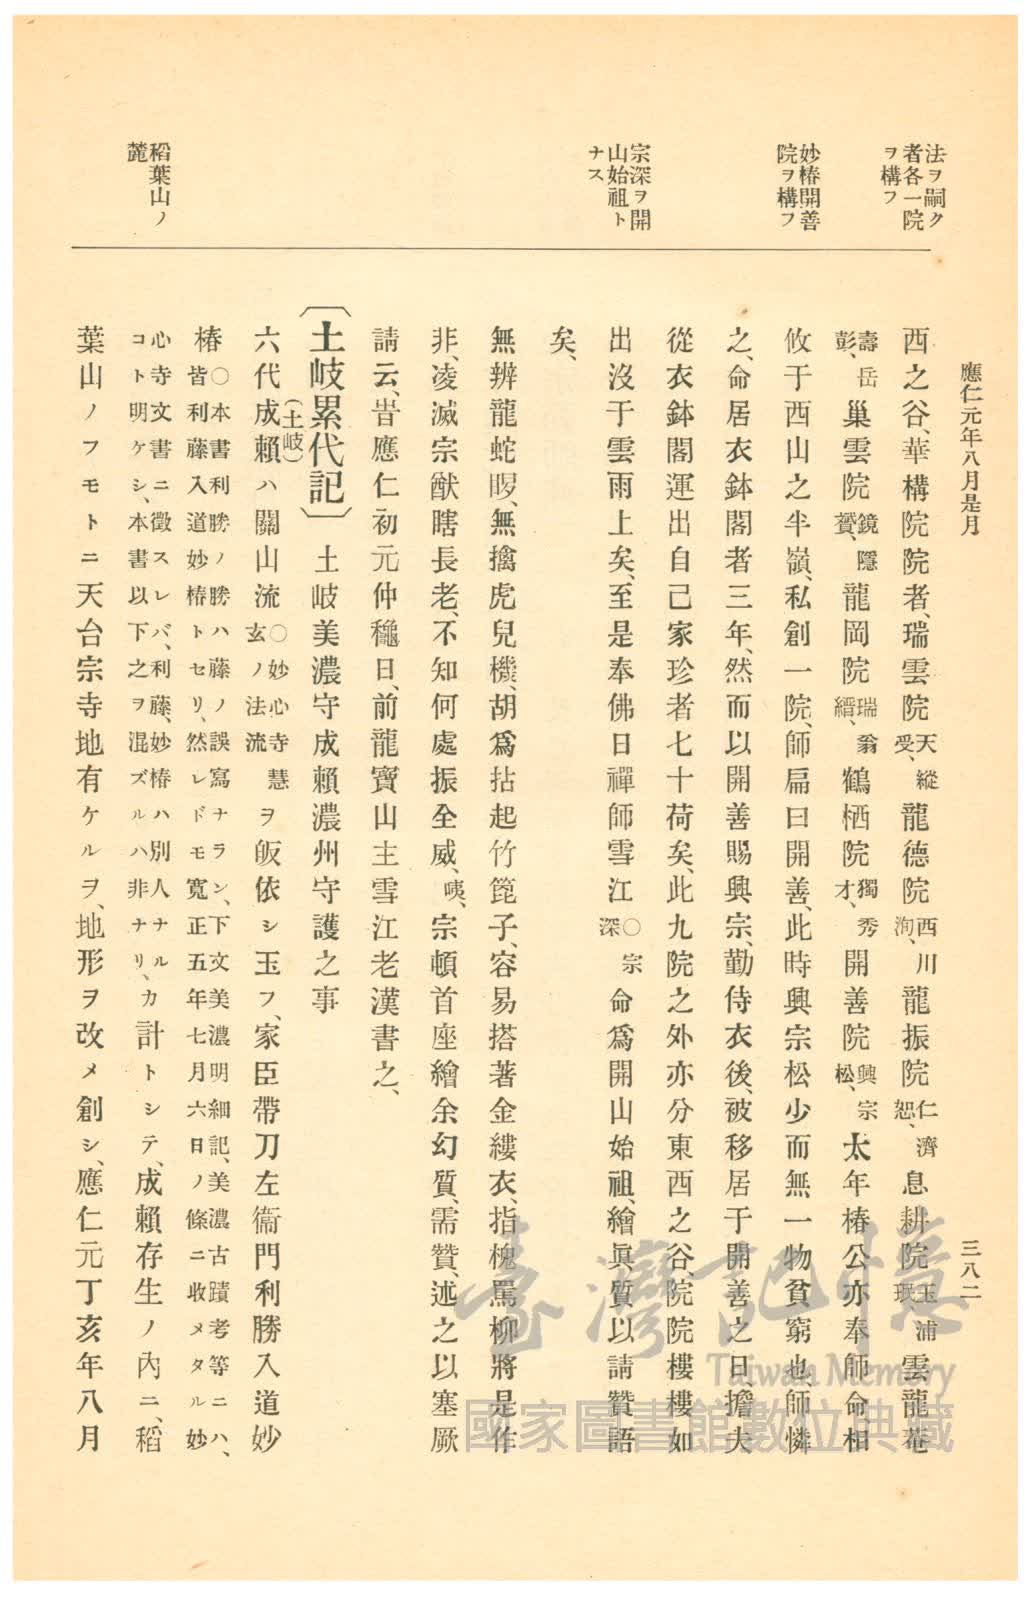 應仁元年八月是月
三八二
法ヲ嗣ク
者各一院
ヲ構フ
妙椿開善
院ヲ構フ
宗深ヲ開
山始祖ト
ナス
稻葉山ノ
麓
西之谷、華構院院者、瑞雲院天縱受、龍德院西川洵、龍振院仁濟恕、息耕院玉浦珉、雲龍菴
壽岳彭、巢雲院鏡隱贇、龍岡院瑞翁縉、鶴栖院獨秀才、開善院興宗松、太年椿公亦奉師命相
攸于西山之半嶺、私創一院、師扁曰開善、此時興宗松少而無一物貧窮也、師憐
之、命居衣鉢閣者三年、然而以開善賜興宗、勤侍衣後、被移居于開善之日、擔夫
從衣鉢閣運出自己家珍者七十荷矣、此九院之外亦分東西之谷、院院樓樓如
出沒于雲雨上矣、至是奉佛日禪師雪江○宗深命爲開山始祖、繪眞質以請贊語
矣、
無辨龍蛇眼、無擒虎兒機、胡爲拈起竹箆子、容易搭著金縷衣、指槐罵柳將是作
非、凌滅宗猷瞎長老、不知何處振全威、咦、宗頓首座繪余幻質、需贊、述之以塞厥
請云、旹應仁初元仲穐日、前龍寶山主雪江老漢書之、
〔土岐累代記〕 土岐美濃守成賴濃州守護之事
六代成賴(土岐)ハ關山流○妙心寺慧玄ノ法流ヲ皈依シ玉フ、家臣帶刀左衞門利勝入道妙
椿○本書利勝ノ勝ハ藤ノ誤寫ナラン、下文美濃明細記、美濃古蹟考等ニハ、
皆利藤入道妙椿トセリ、然レドモ寬正五年七月六日ノ條ニ收メタル妙
心寺文書ニ徵スレバ、利藤、妙椿ハ別人ナル
コト明ケシ、本書以下之ヲ混ズルハ非ナリ、カ計トシテ、成賴存生ノ內ニ、稻
葉山ノフモトニ天台宗寺地有ケルヲ、地形ヲ改メ創シ、應仁元丁亥年八月
臺灣記憶
Taiwan Memory
國家圖書館數位典藏